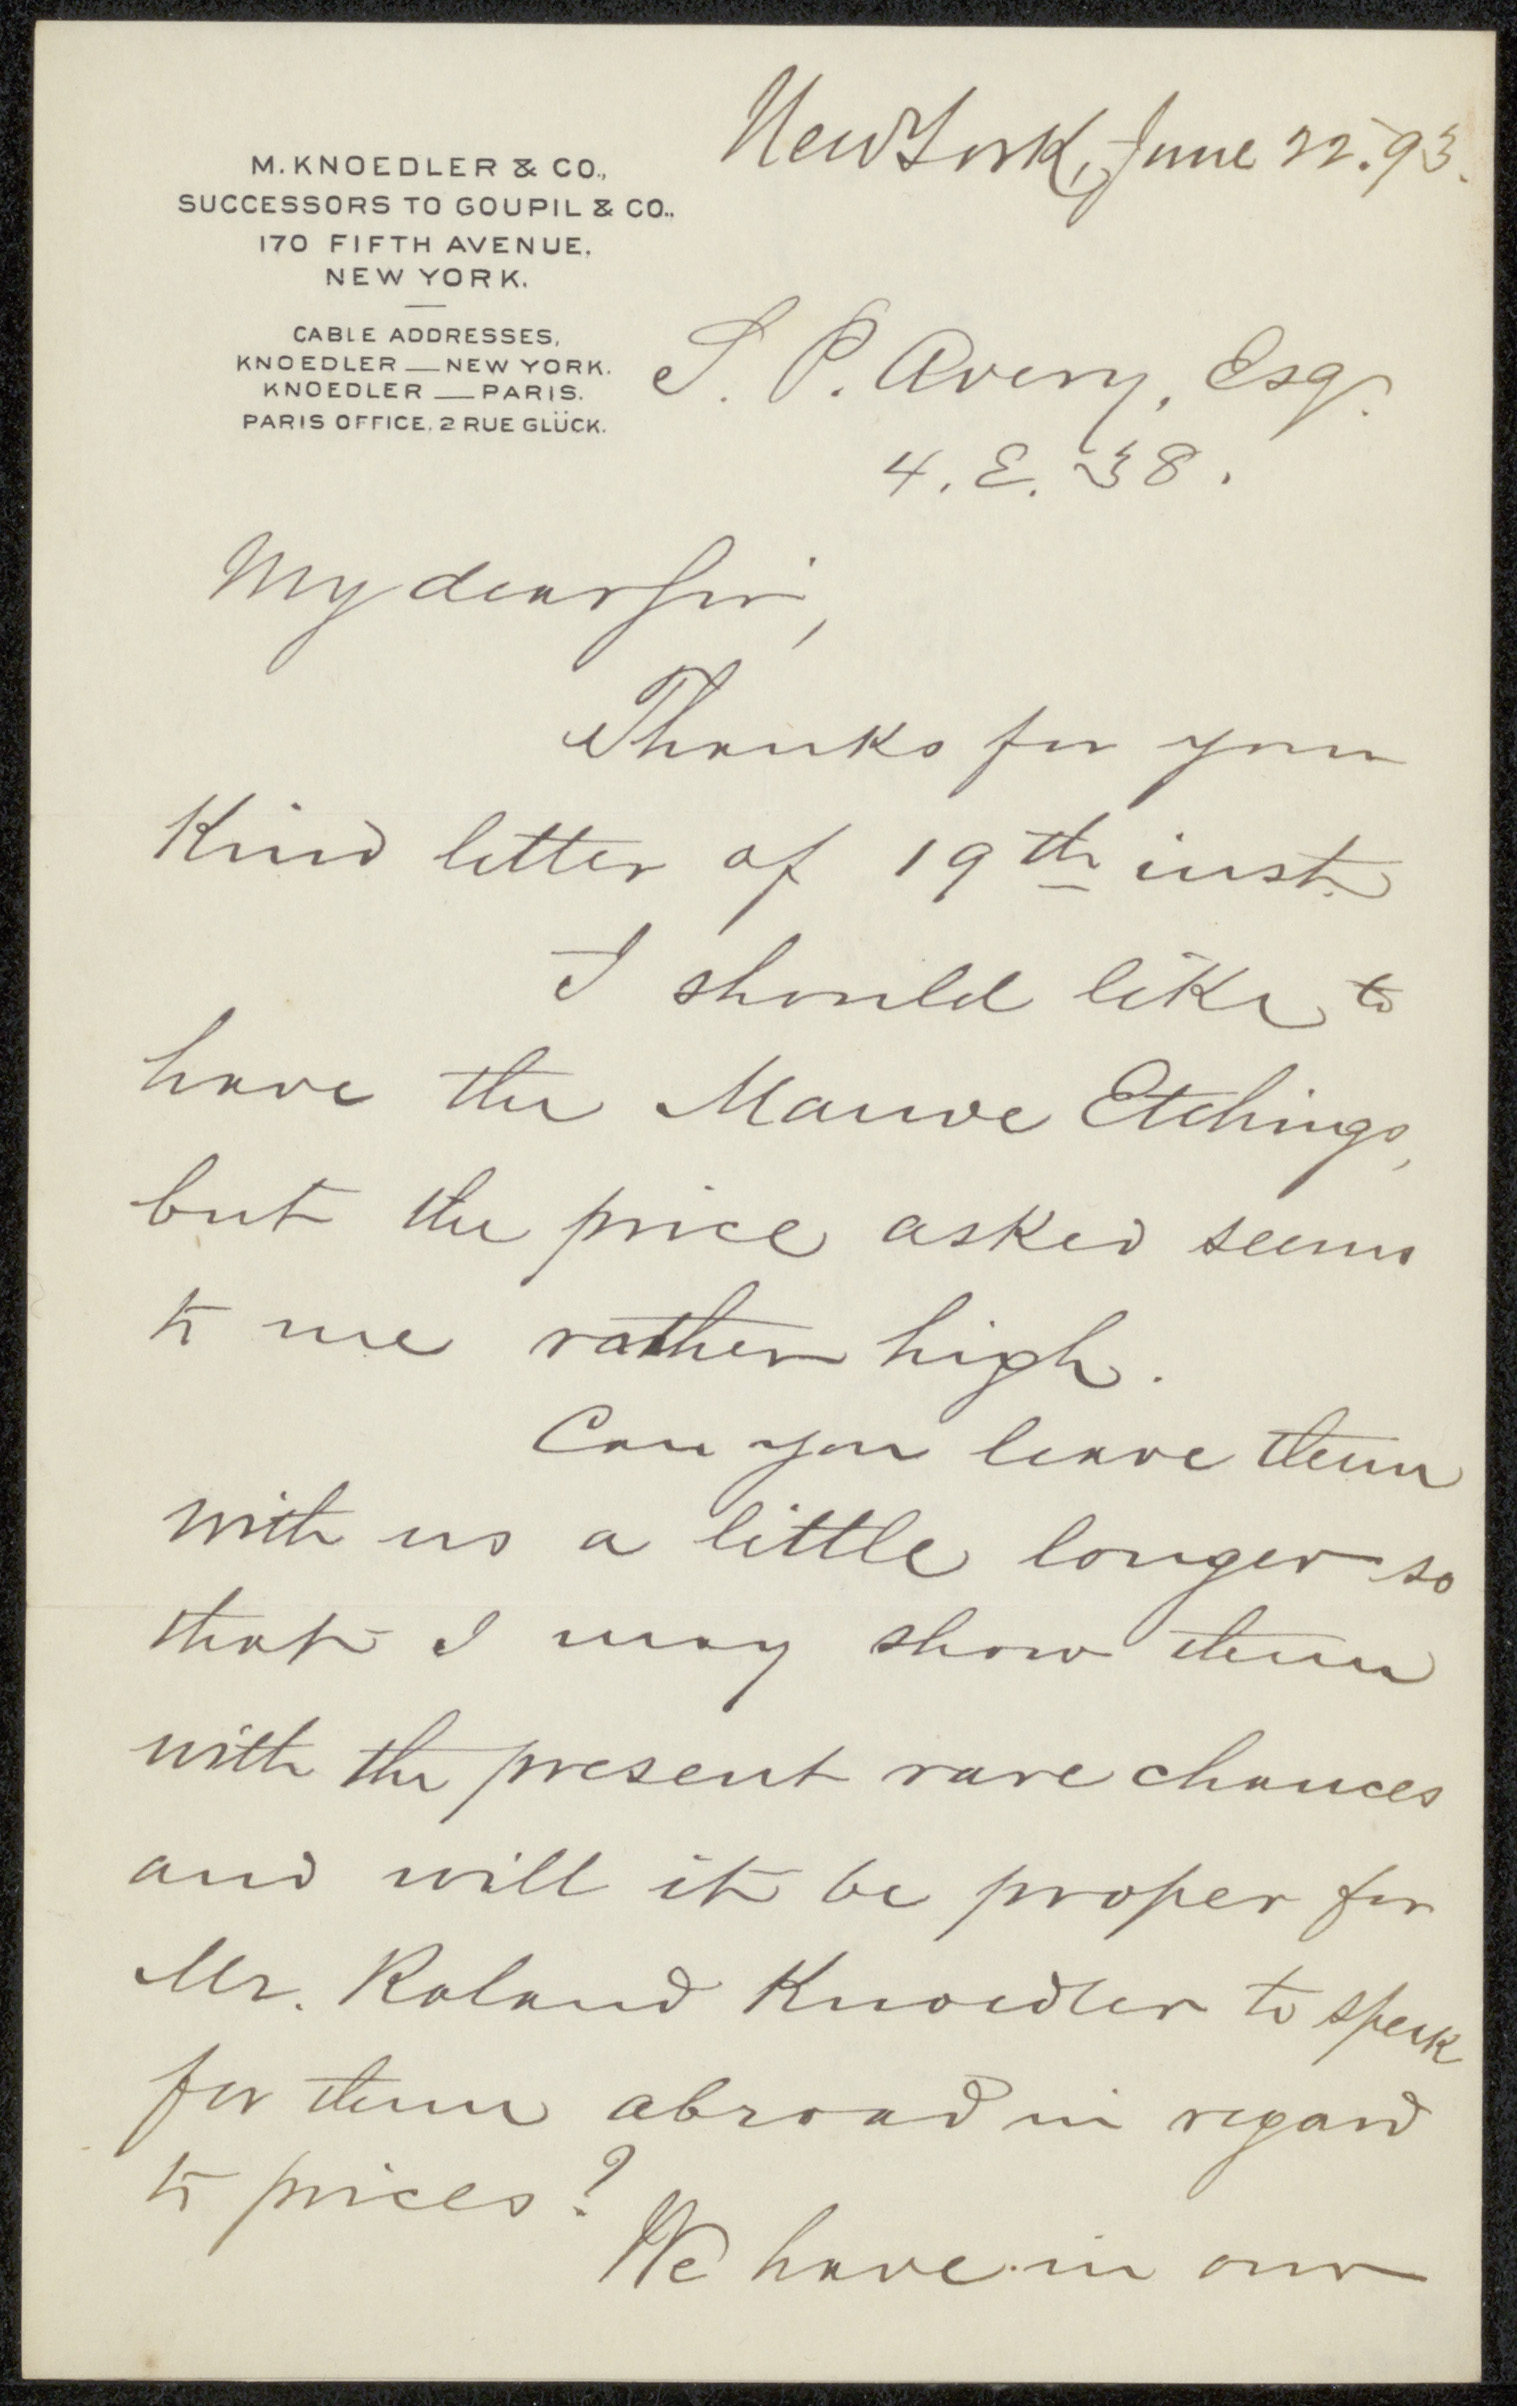 New York, June 22. 93.
M. KNOEDLER & CO.,
SUCCESSORS TO GOUPIL & CO.,
170 FIFTH AVENUE,
NEW YORK.
CABLE ADDRESSES,
KNOEDLER — NEW YORK.
KNOEDLER — PARIS.
PARIS OFFICE, 2 RUE GLÜCK.
S. P. Avery, Esq.
4. E. 38.
My dear Sir,
Thanks for your
Kind letter of 19th inst.
I should like to
have the Mauve Etchings,
but the price asked seems
to me rather high.
Can you leave them
with us a little longer so
that I may show them
with the present rare chances
and will it be proper for
Mr. Roland Knoedler to speak
for them abroad in regard
to prices?
We have in our